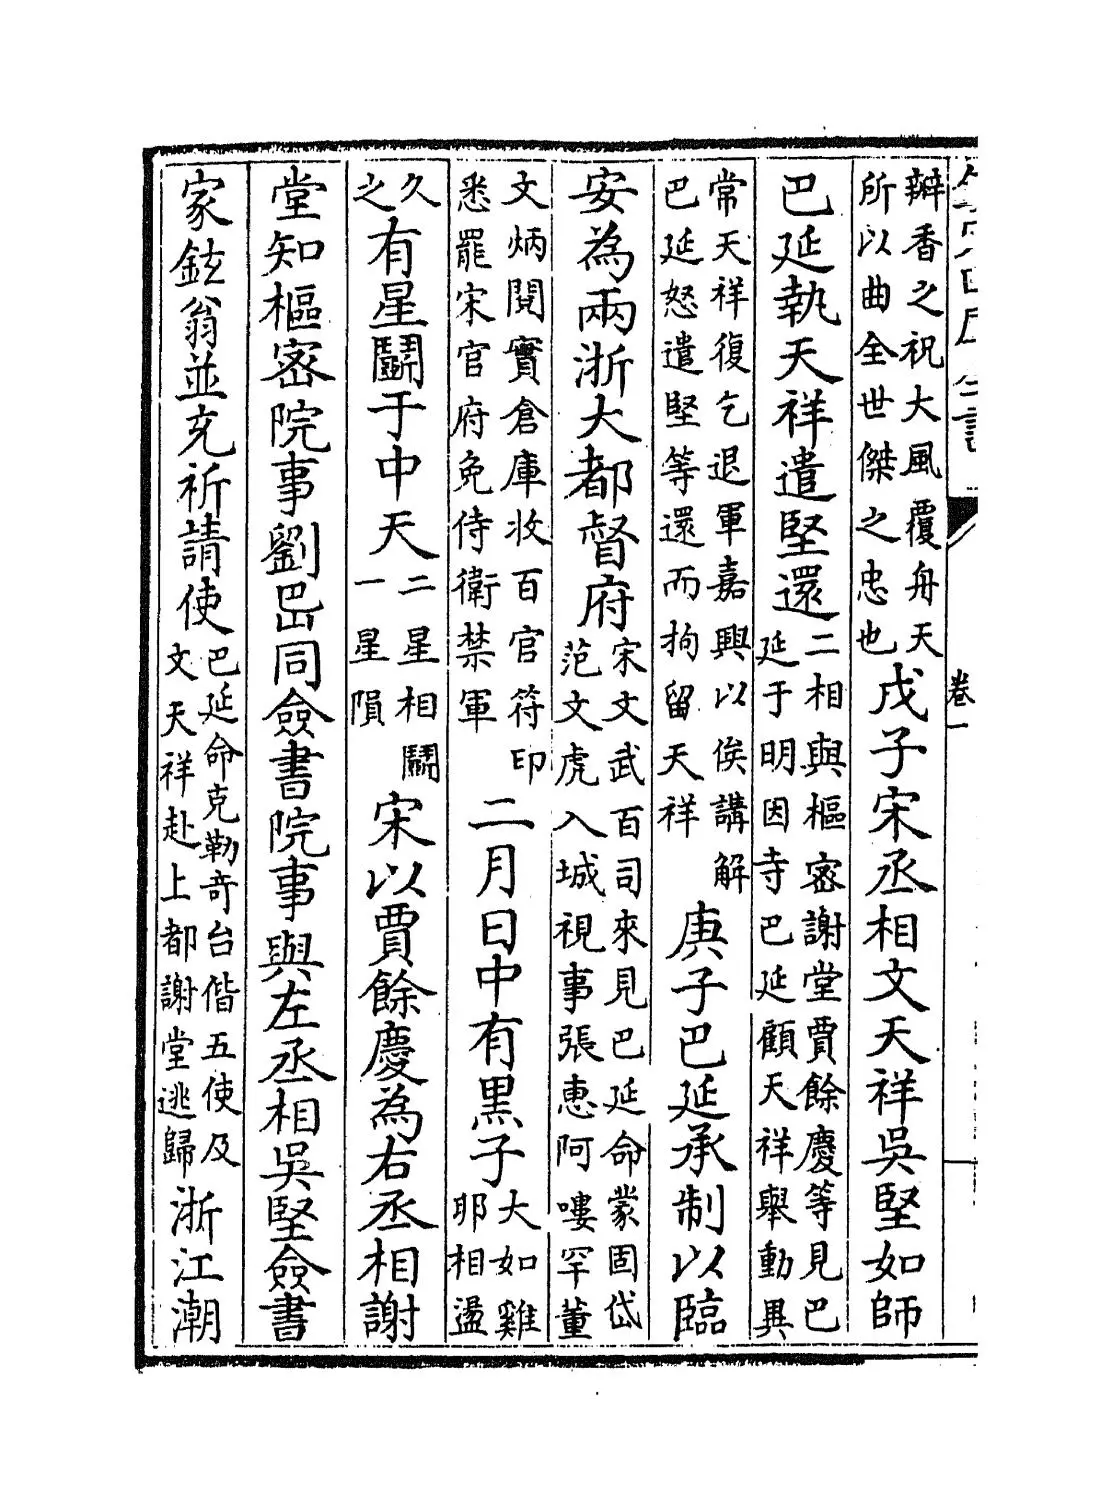 卷一
辦香之祝大風覆舟天
所以曲全世傑之忠也
戊子宋丞相文天祥吳堅如師
巴延執天祥遣堅還
二相與樞密謝堂賈餘慶等見巴
延于明因寺巴延顧天祥舉動異
常天祥復乞退軍嘉興以俟講解
巴延怒遣堅等還而拘留天祥
庚子巴延承制以臨
安為兩浙大都督府
宋文武百司來見巴延命蒙固岱
范文虎入城視事張惠阿嘍罕董
文炳閱實倉庫收百官符印
悉罷宋官府免侍衛禁軍
二月日中有黑子
大如雞
耶相盪
久
之
有星鬭于中天
二星相鬭
一星隕
宋以賈餘慶為右丞相謝
堂知樞密院事劉岊同僉書院事與左丞相吳堅僉書
家鉉翁並充祈請使
巴延命克勒奇台偕五使及
文天祥赴上都謝堂逃歸
浙江潮